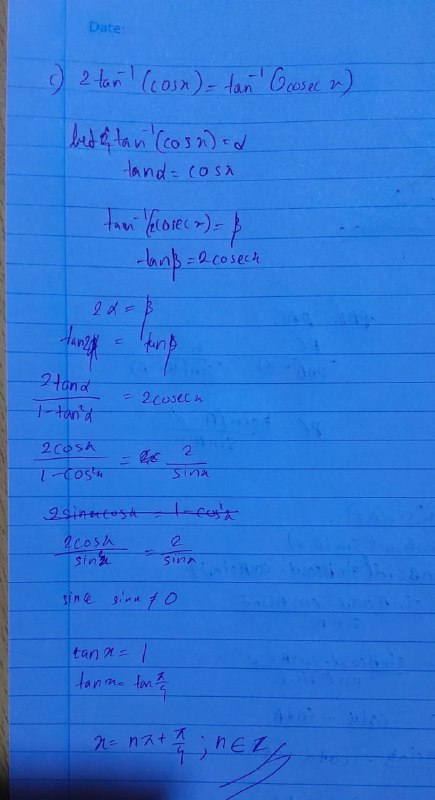 Date:
c) 2 tan⁻¹(cosx) = tan⁻¹(2cosec x)
let tan⁻¹(cosx) = α
tanα = cosx
tan⁻¹(2cosec x) = β
tanβ = 2cosecx
2α = β
tan2α = tanβ
2tanα / 1-tan²α = 2cosecx
2cosx / 1-cos²x = 2 / sinx
2sinxcosx = 1-cos²x
2cosx / sin²x = 2 / sinx
since sinx ≠ 0
tanx = 1
tanx = tan π/4
x = nπ + π/4 ; n ∈ Z